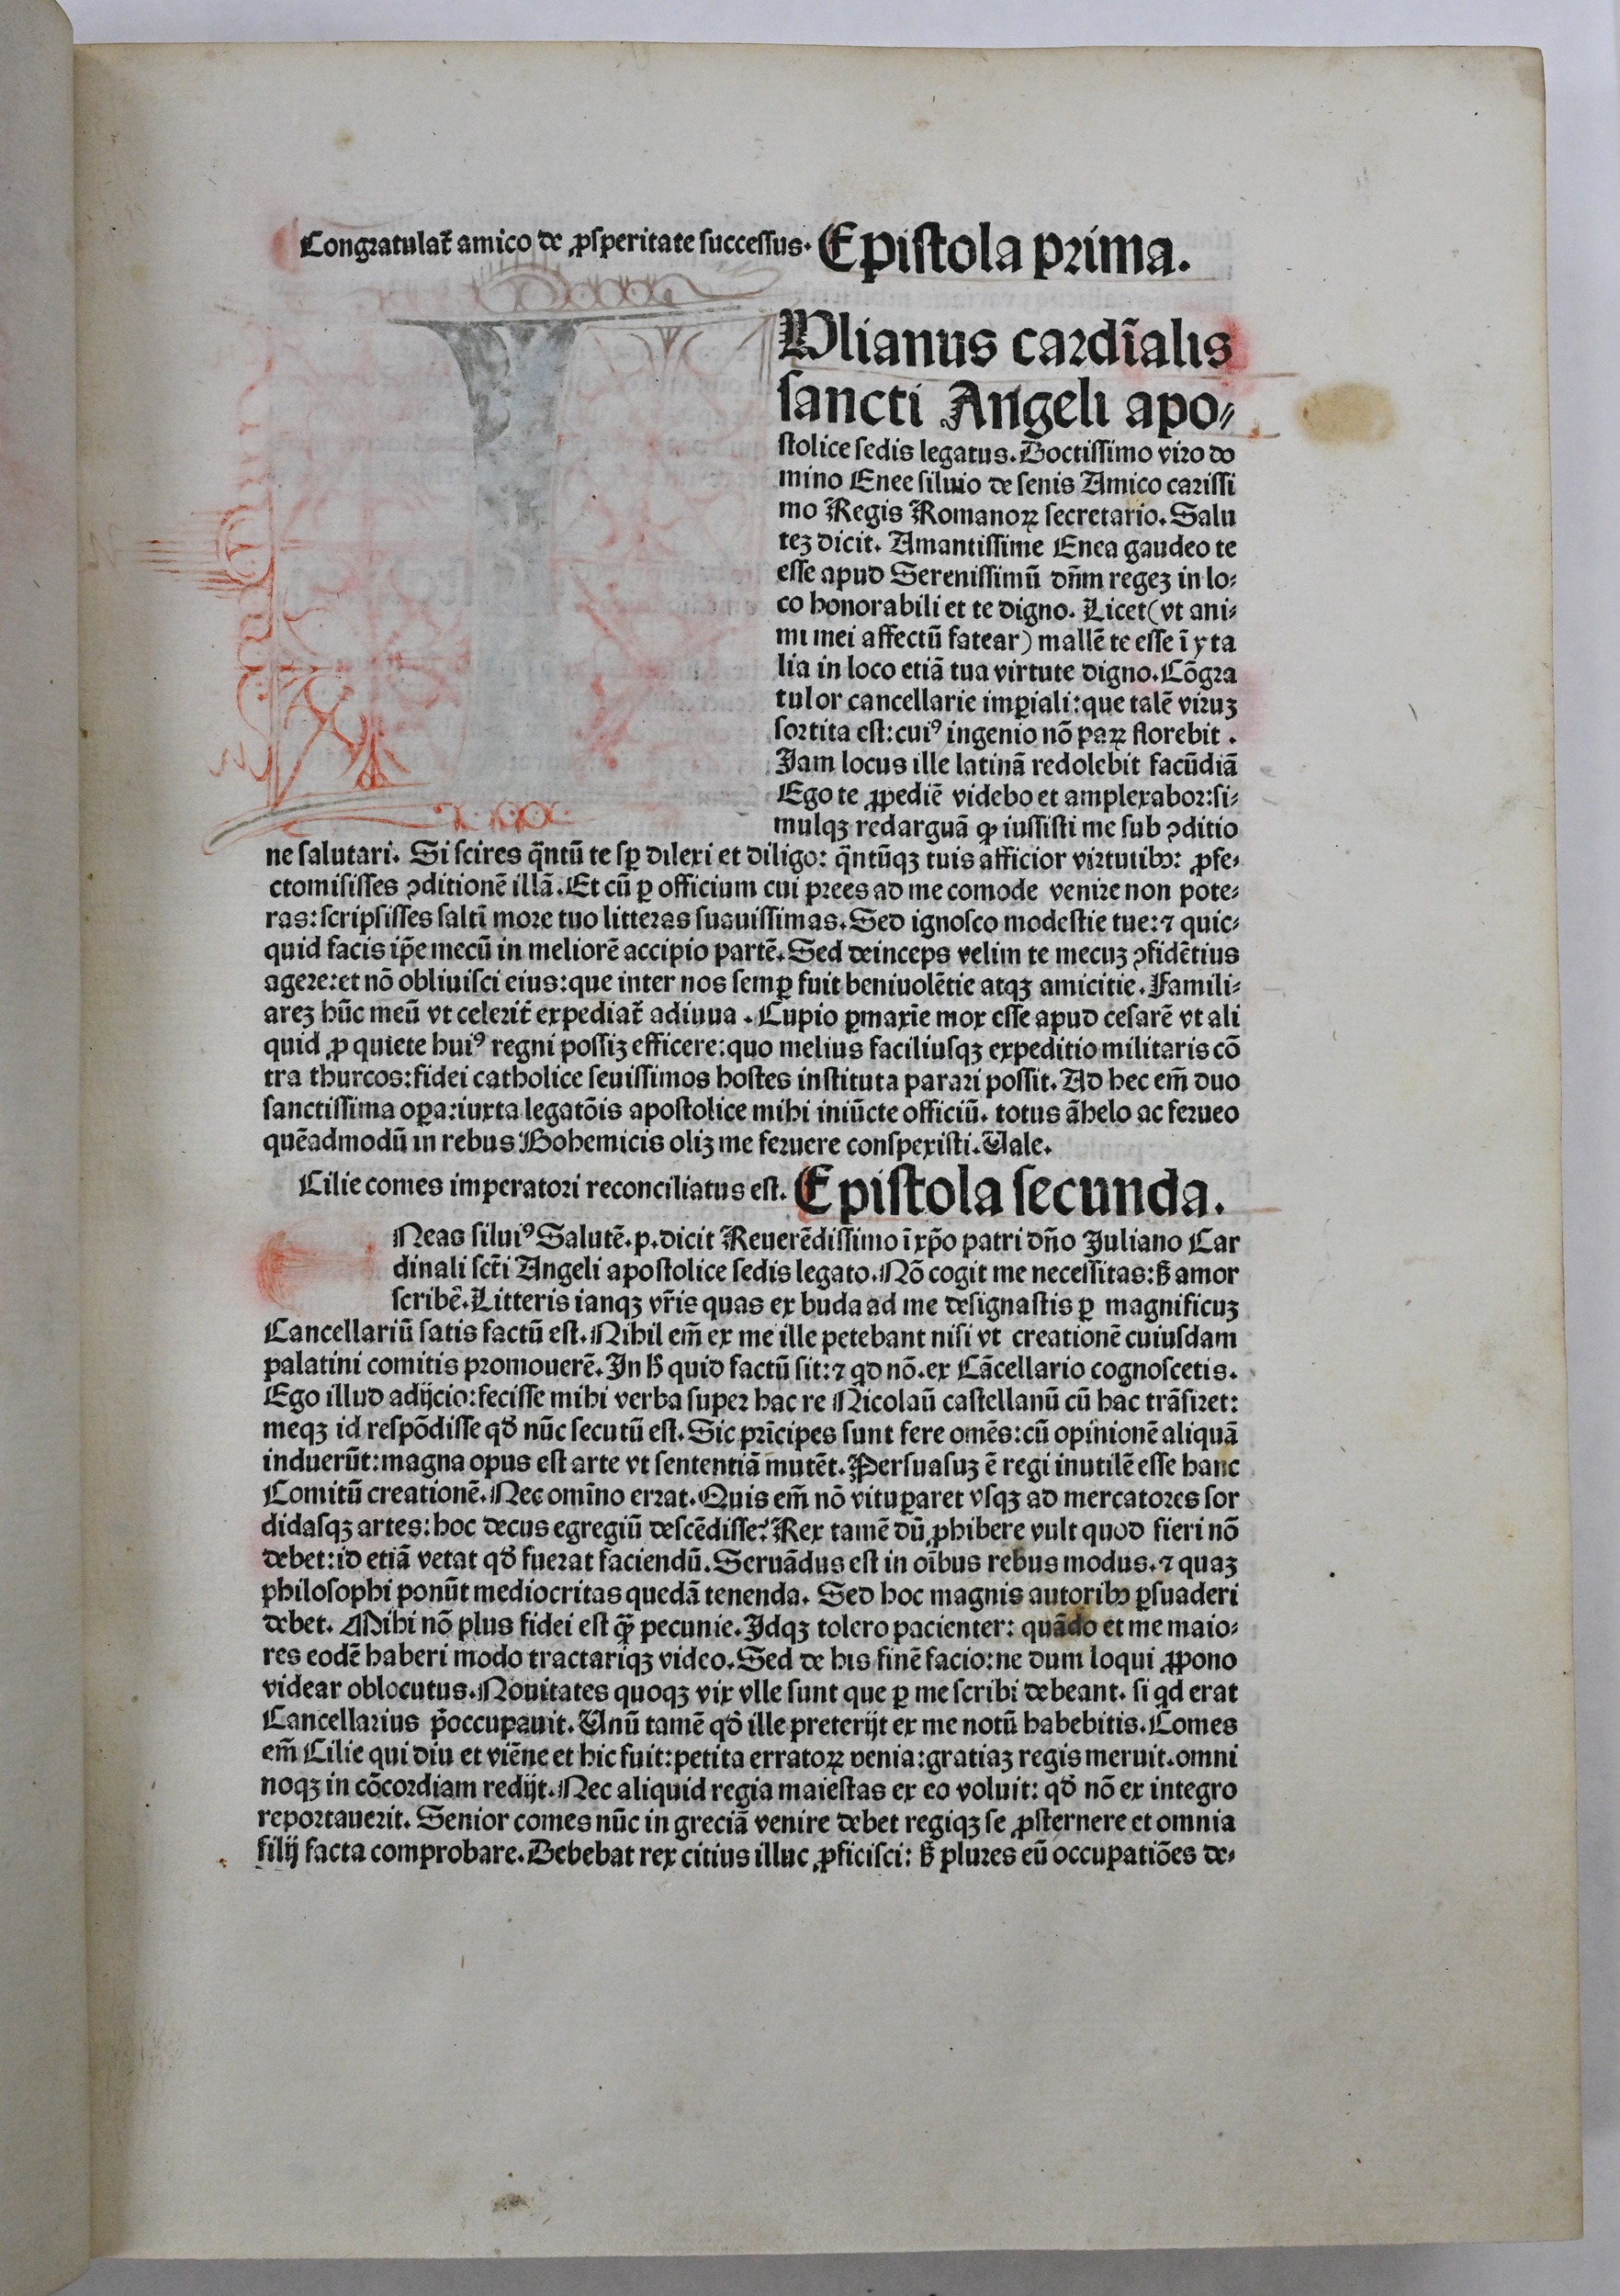 Congratulat᷑ amico de ꝓsperitate successus. Epistola prima.
Vlianus cardīalis
sancti Angeli apo⸗
stolice sedis legatus. Doctissimo viro do
mino Enee siluio de senis Amico carissi
mo Regis Romanoꝝ secretario. Salu
teꝫ dicit. Amantissime Enea gaudeo te
esse apud Serenissimū dn̄m regeꝫ in lo⸗
co honorabili et te digno. Licet (vt ani⸗
mi mei affectū fatear) mallē te esse ī yta
lia in loco etiā tua virtute digno. Cōgra
tulor cancellarie imꝑiali: que talē viruꝫ
sortita est: cuiꝰ ingenio nō paꝝ florebit .
Jam locus ille latinā redolebit facūdiā
Ego te ꝓpediē videbo et amplexabor: si⸗
mulqꝫ redarguā ꝙ iussisti me sub ꝯditio
ne salutari. Si scires q̄ntū te sꝑ dilexi et diligo: q̄ntūqꝫ tuis afficior virtutibꝰ: ꝓfe⸗
cto misisses ꝯditionē illā. Et cū ꝑ officium cui prees ad me comode venire non pote⸗
ras: scripsisses saltī more tuo litteras suauissimas. Sed ignosco modestie tue: ⁊ quic⸗
quid facis ip̄e mecū in meliorē accipio partē. Sed deinceps velim te mecuꝫ ꝯfidētius
agere: et nō obliuisci eius: que inter nos semꝑ fuit beniuolētie atqꝫ amicitie. Famili⸗
areꝫ hūc meū vt celerit᷑ expediat᷑ adiuua . Cupio ꝑmaxīe mox esse apud cesarē vt ali
quid ꝓ quiete huiꝰ regni possiꝫ efficere: quo melius faciliusqꝫ expeditio militaris cō
tra thurcos: fidei catholice seuissimos hostes instituta parari possit. Ad hec em̄ duo
sanctissima oꝑa: iuxta legatōis apostolice mihi iniūcte officiū. totus āhelo ac ferueo
quēadmodū in rebus Bohemicis oliꝫ me feruere conspexisti. Vale.
Cilie comes imperatori reconciliatus est. Epistola secunda.
Neas siluiꝰ Salutē. p. dicit Reuerēdissimo ī xp̄o patri dn̄o Juliano Car
dinali sct̄i Angeli apostolice sedis legato. Nō cogit me necessitas: ẞ amor
scribē. Litteris ianqꝫ vr̄is quas ex buda ad me designastis ꝑ magnificuꝫ
Cancellariū satis factū est. Nihil em̄ ex me ille petebant nisi vt creationē cuiusdam
palatini comitis promouerē. In h̄ quid factū sit: ⁊ qd nō. ex Cācellario cognoscetis.
Ego illud adijcio: fecisse mihi verba super hac re Nicolaū castellanū cū hac trāsiret:
meqꝫ id respōdisse qd̄ nūc secutū est. Sic prīcipes sunt fere omēs: cū opinionē aliquā
induerūt: magna opus est arte vt sententiā mutēt. Persuasuꝫ ē regi inutilē esse hanc
Comitū creationē. Nec omīno errat. Quis em̄ nō vituꝑaret vsqꝫ ad mercatores sor
didasqꝫ artes: hoc decus egregiū descēdisse? Rex tamē dū ꝓhibere vult quod fieri nō
debet: id etiā vetat qd̄ fuerat faciendū. Seruādus est in oībus rebus modus. ⁊ quaꝫ
philosophi ponūt mediocritas quedā tenenda. Sed hoc magnis autoribꝰ ꝑsuaderi
debet. Mihi nō plus fidei est ꝙ̄ pecunie. Idqꝫ tolero pacienter: quādo et me maio⸗
res eodē haberi modo tractariqꝫ video. Sed de his finē facio: ne dum loqui ꝓpono
videar oblocutus. Nouitates quoqꝫ vix vlle sunt que ꝑ me scribi debeant. si qd erat
Cancellarius p̄occupauit. Vnū tamē qd̄ ille preterijt ex me notū habebitis. Comes
em̄ Cilie qui diu et viēne et hic fuit: petita erratoꝝ venia: gratiaꝫ regis meruit. omni
noqꝫ in cōcordiam redijt. Nec aliquid regia maiestas ex eo voluit: qd̄ nō ex integro
reportauerit. Senior comes nūc in greciā venire debet regiqꝫ se ꝓsternere et omnia
filij facta comprobare. Debebat rex citius illuc ꝓficisci: ẞ plures eū occupatiōes de⸗